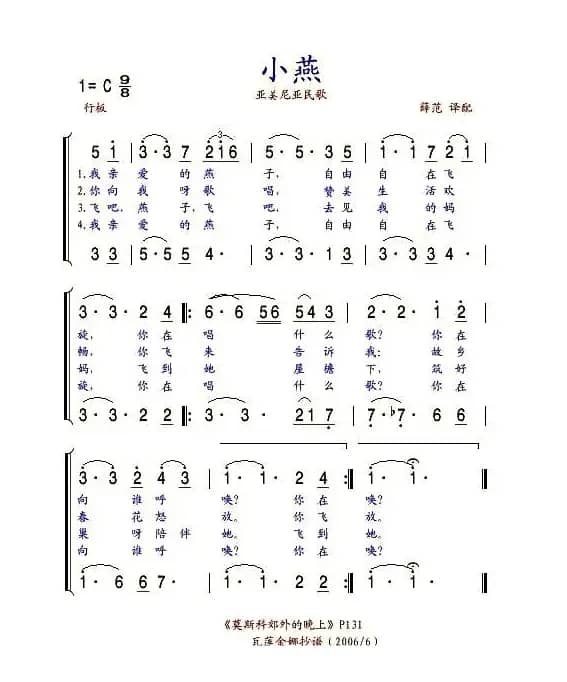 小燕
1= C 9/8
亚美尼亚民歌
行板
薛范 译配
5 1 3· 3 7 216 5· 5· 3 5 1· 1 7 2 1
1.我 亲 爱 的 燕 子, 自由 自 在 飞
2.你 向 我 呀 歌 唱, 赞美 生 活 欢
3.飞 吧, 燕 子, 飞 吧, 去见 我 的 妈
4.我 亲 爱 的 燕 子, 自由 自 在 飞
3 3 5· 5 5 4· 3· 3· 1 3 3· 3 3 4·
3· 3· 2 4 6· 6 56 543 2· 2· 1 2
旋, 你在 唱 什么 歌? 你在
畅, 你飞 来 告诉 我: 故乡
妈, 飞到 她 屋檐 下, 筑好
旋, 你在 唱 什么 歌? 你在
3· 3· 2 2 3· 3· 217 7· ♭7· 6 6
3· 3 2 4 3 1· 1· 2 4 1· 1·
向 谁呼 唤? 你在 唤?
春 花怒 放。 你飞 放。
巢 呀陪伴 她。 飞到 她。
向 谁呼 唤? 你在 唤?
1· 6 6 7 1· 1· 2 4 1· 1·
《莫斯科郊外的晚上》P131
瓦莲金娜抄谱（2006/6）